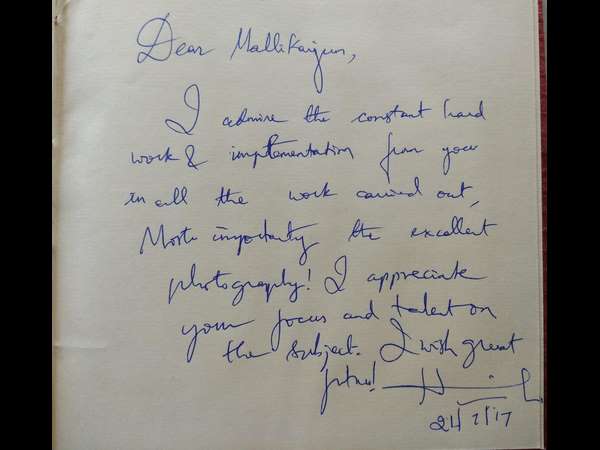 Dear Mallikarjun,
I admire the constant hard
work & implementation from you
in all the work carried out,
Most importantly the excellent
photography! I appreciate
your focus and talent on
the subject. I wish great
24/7/17